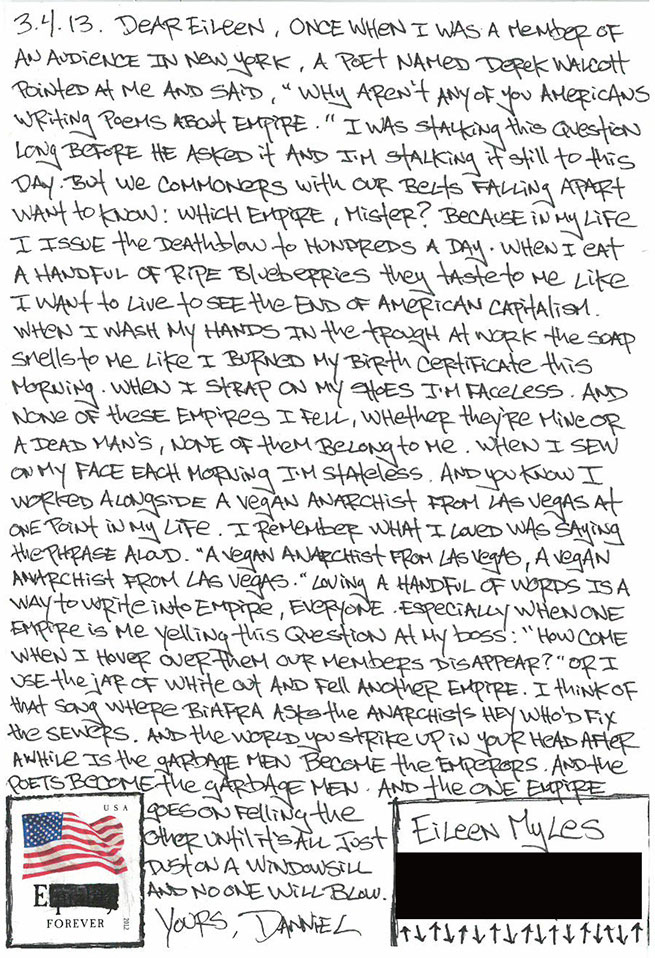 3.4.13. Dear Eileen, once when I was a member of
an audience in New York, a poet named Derek Walcott
pointed at me and said, "Why aren't any of you Americans
writing poems about empire." I was stalking this question
long before he asked it and I'm stalking it still to this
day. But we commoners with our belts falling apart
want to know: which empire, mister? Because in my life
I issue the deathblow to hundreds a day. When I eat
a handful of ripe blueberries they taste to me like
I want to live to see the end of American capitalism.
When I wash my hands in the trough at work the soap
smells to me like I burned my birth certificate this
morning. When I strap on my shoes I'm faceless. And
none of these empires I fell, whether they're mine or
a dead man's, none of them belong to me. When I sew
on my face each morning I'm stateless. And you know I
worked alongside a vegan anarchist from Las Vegas at
one point in my life. I remember what I loved was saying
the phrase aloud. "A vegan anarchist from Las Vegas, a vegan
anarchist from Las Vegas." Loving a handful of words is a
way to write into empire, everyone. Especially when one
empire is me yelling this question at my boss: "How come
when I hover over them our members disappear?" Or I
use the jar of white out and fell another empire. I think of
that song where Biafra asks the anarchists hey who'd fix
the sewers. And the world you strike up in your head after
awhile is the garbage men become the emperors. And the
poets become the garbage men. And the one empire
goes on felling the
other until it's all just
dust on a windowsill
and no one will blow.
Yours, Danniel
USA
E
FOREVER
2012
Eileen Myles